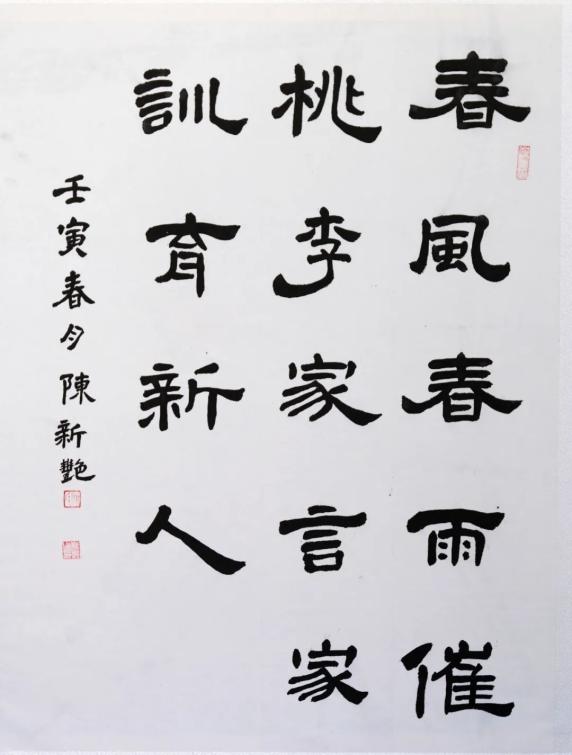 春風春雨催
桃李家言家
訓育新人
壬寅春月陳新艷